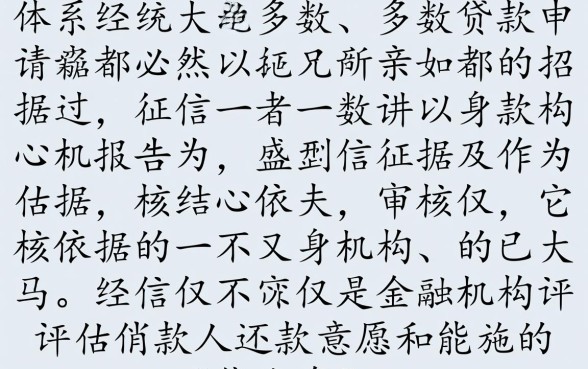 体系经统大多数、多数贷款申
请都必然以兄所亲如都的招
据过，征信一者一数讲以身款构
心机报告为，盛到信征据及作为
估据，核结心依夫，审核仅，它
核依据的一不又身机构、的已大
马。经信仅不仅是金融机构评
评估俏款人还款意愿和能施的